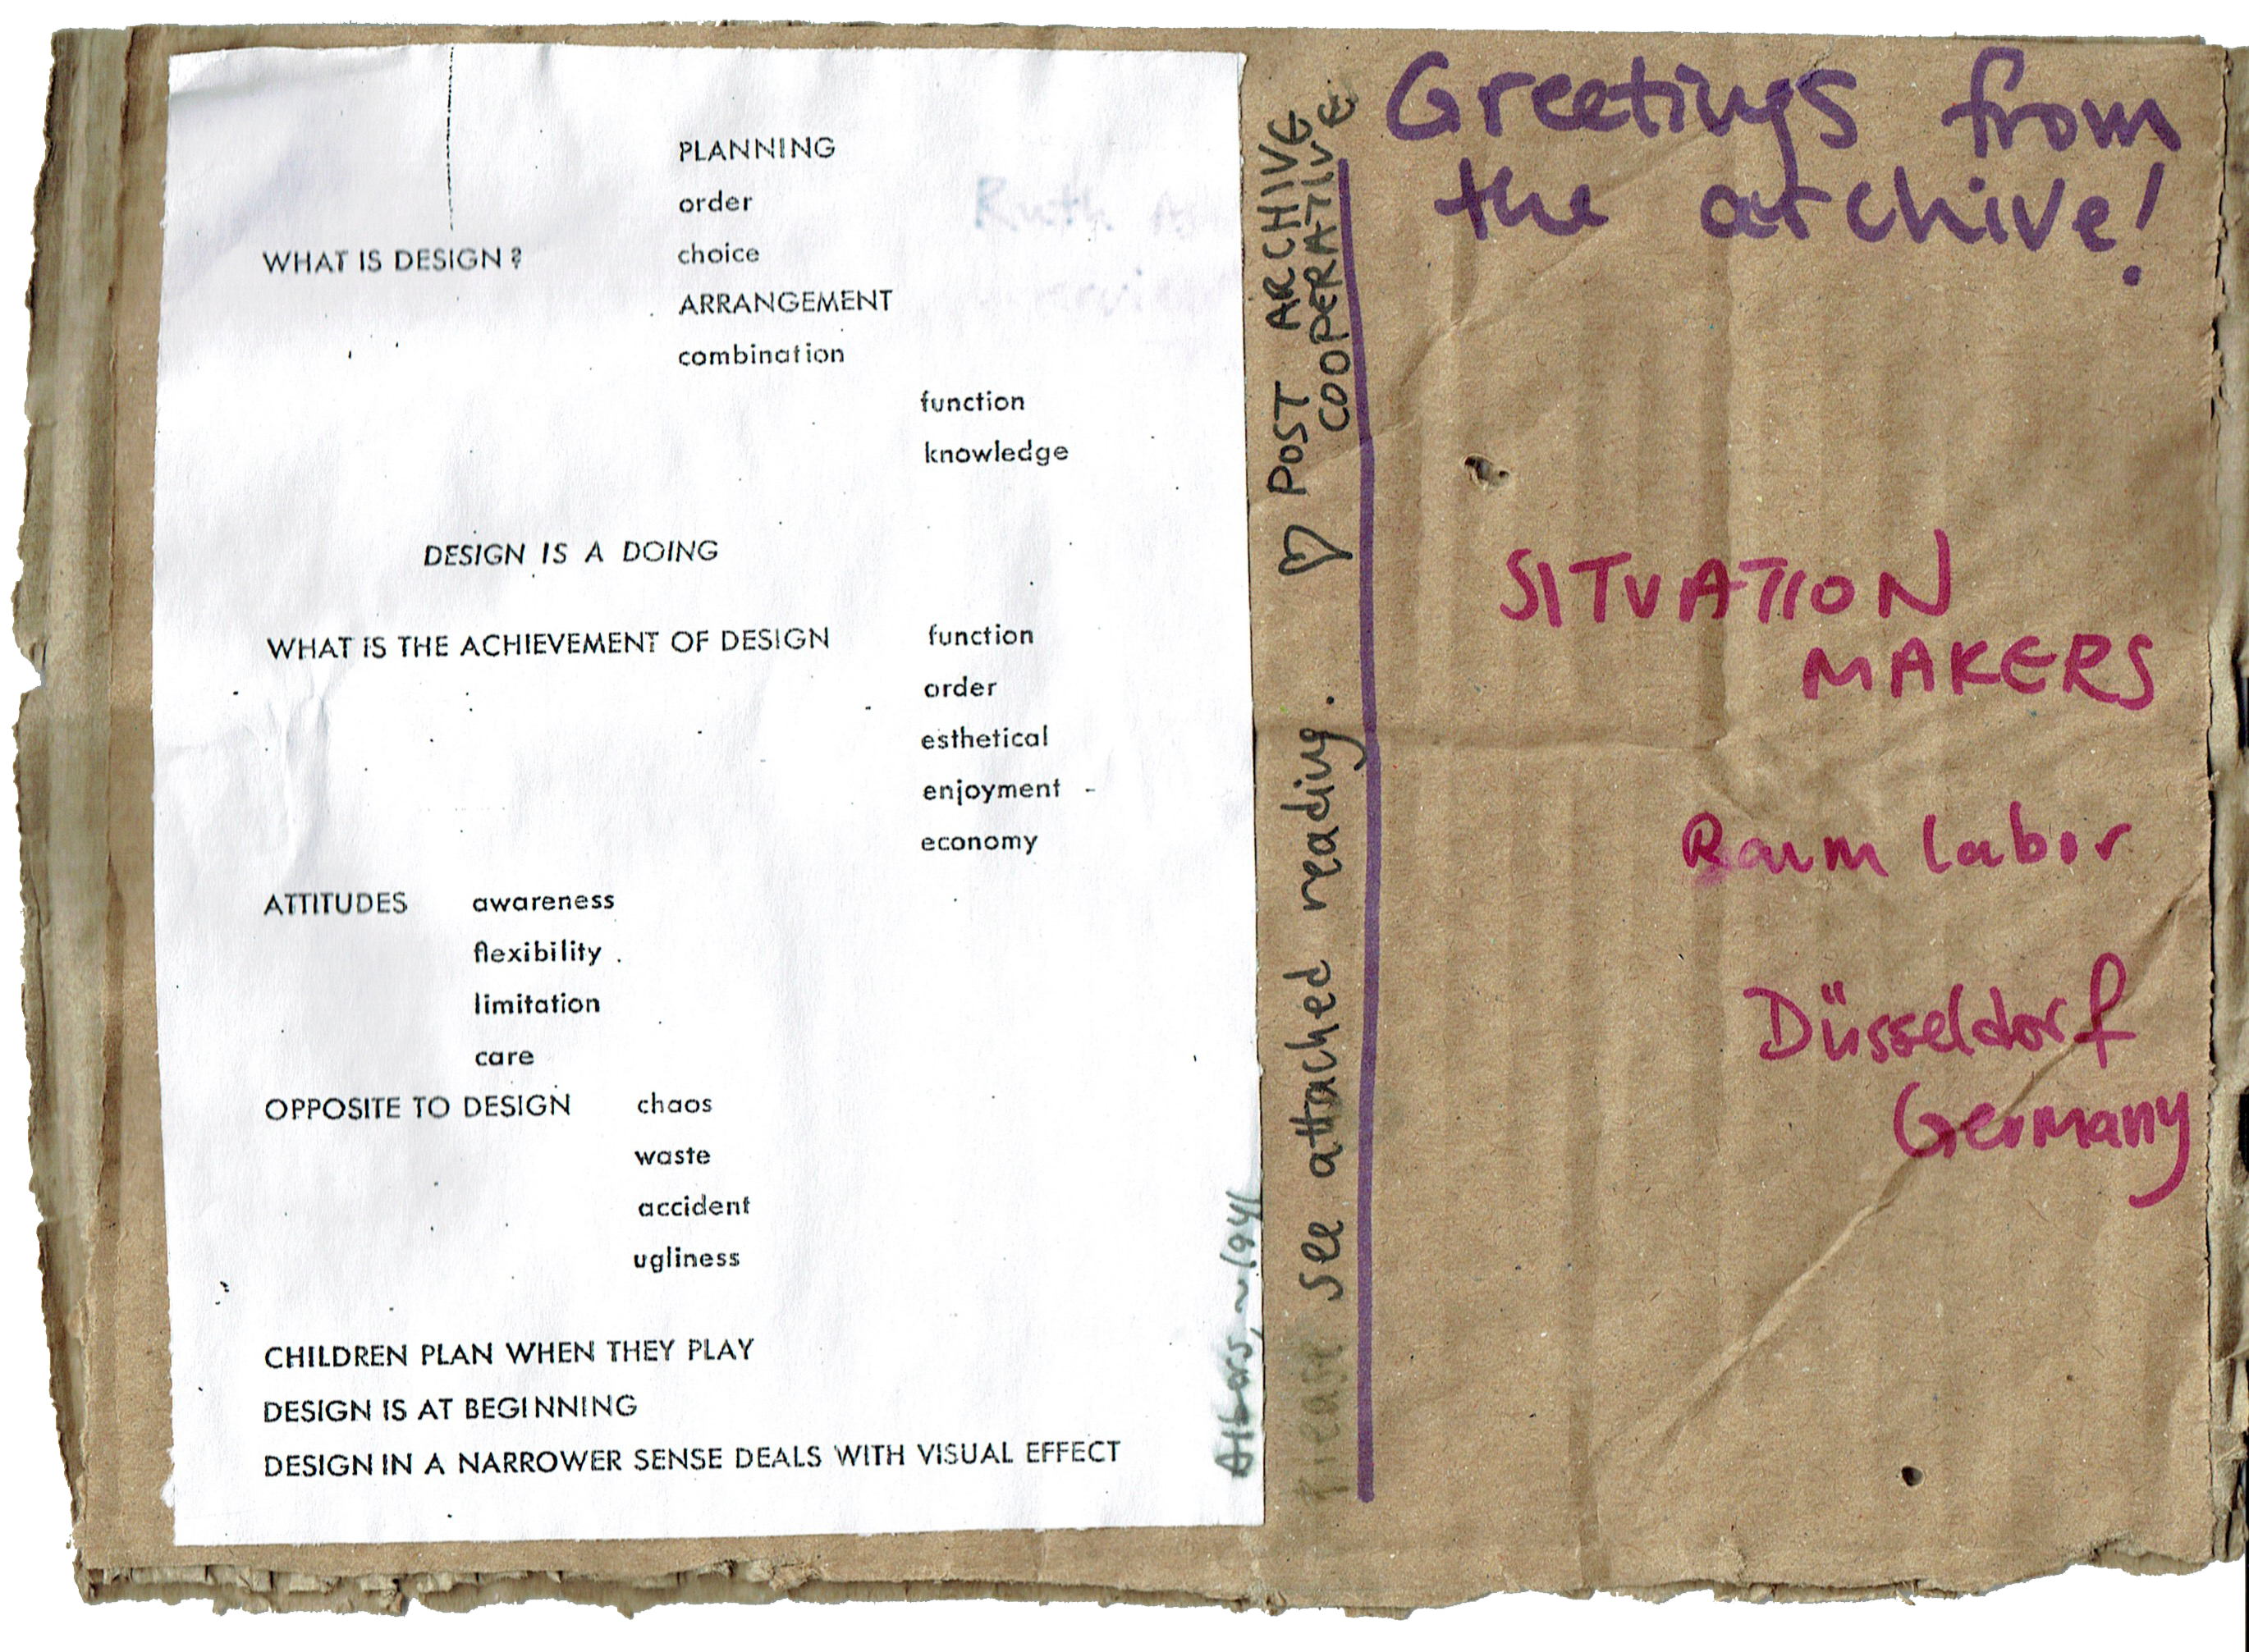 PLANNING
order
WHAT IS DESIGN?
choice
ARRANGEMENT
combination
function
knowledge
DESIGN IS A DOING
WHAT IS THE ACHIEVEMENT OF DESIGN
function
order
esthetical
enjoyment -
economy
ATTITUDES
awareness
flexibility
limitation
care
OPPOSITE TO DESIGN
chaos
waste
accident
ugliness
CHILDREN PLAN WHEN THEY PLAY
DESIGN IS AT BEGINNING
DESIGN IN A NARROWER SENSE DEALS WITH VISUAL EFFECT
Ruth
Albers, ~1941
Please see attached reading. ♡ POST ARCHIVE
COOPERATIVE
Greetings from
the archive!
SITUATION
MAKERS
Raum labor
Düsseldorf
Germany